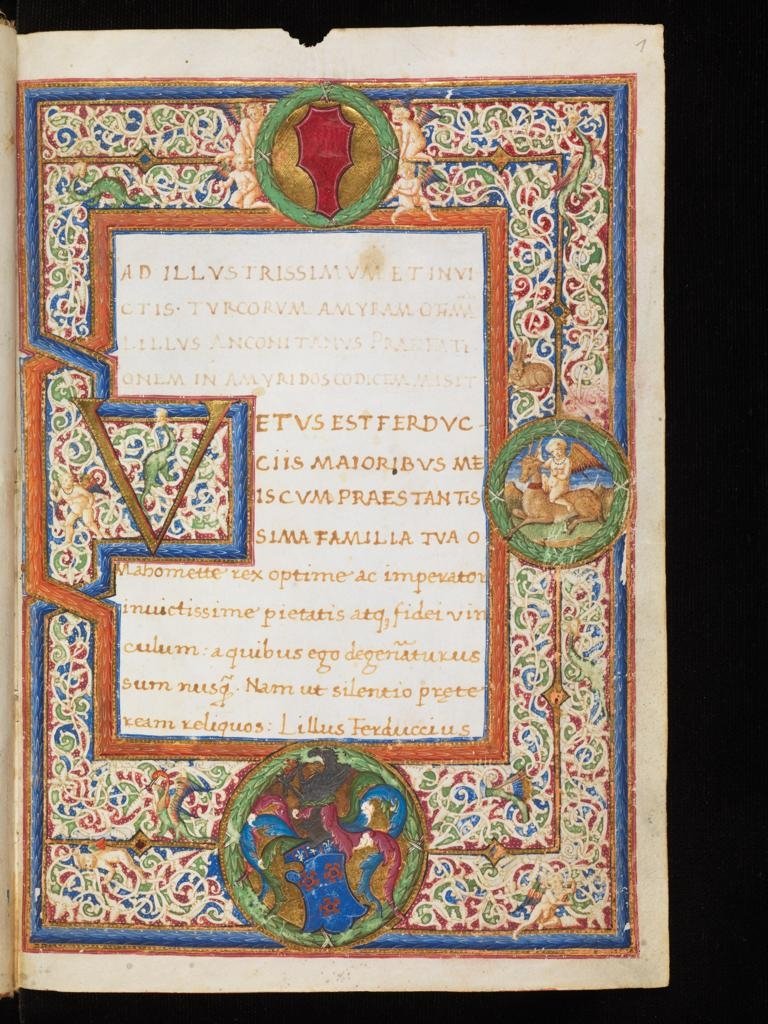 1
AD ILLVSTRISSIMVM ET INVI
CTIS· TVRCORVM AMYRAM OTHM̄
LILLVS ANCONITANVS PRAEFATI
ONEM IN AMYRIDOS CODICEM MISIT
VETVS EST FERDVC-
CIIS MAIORIBVS ME
IS CVM PRAESTANTIS
SIMA FAMILIA TVA O
Mahomette rex optime ac imperator
inuictissime pietatis atq, fidei vin
culum: a quibus ego degen̄aturus
sum nusq̄. Nam ut silentio pręte
ream reliquos: Lillus Ferduccius